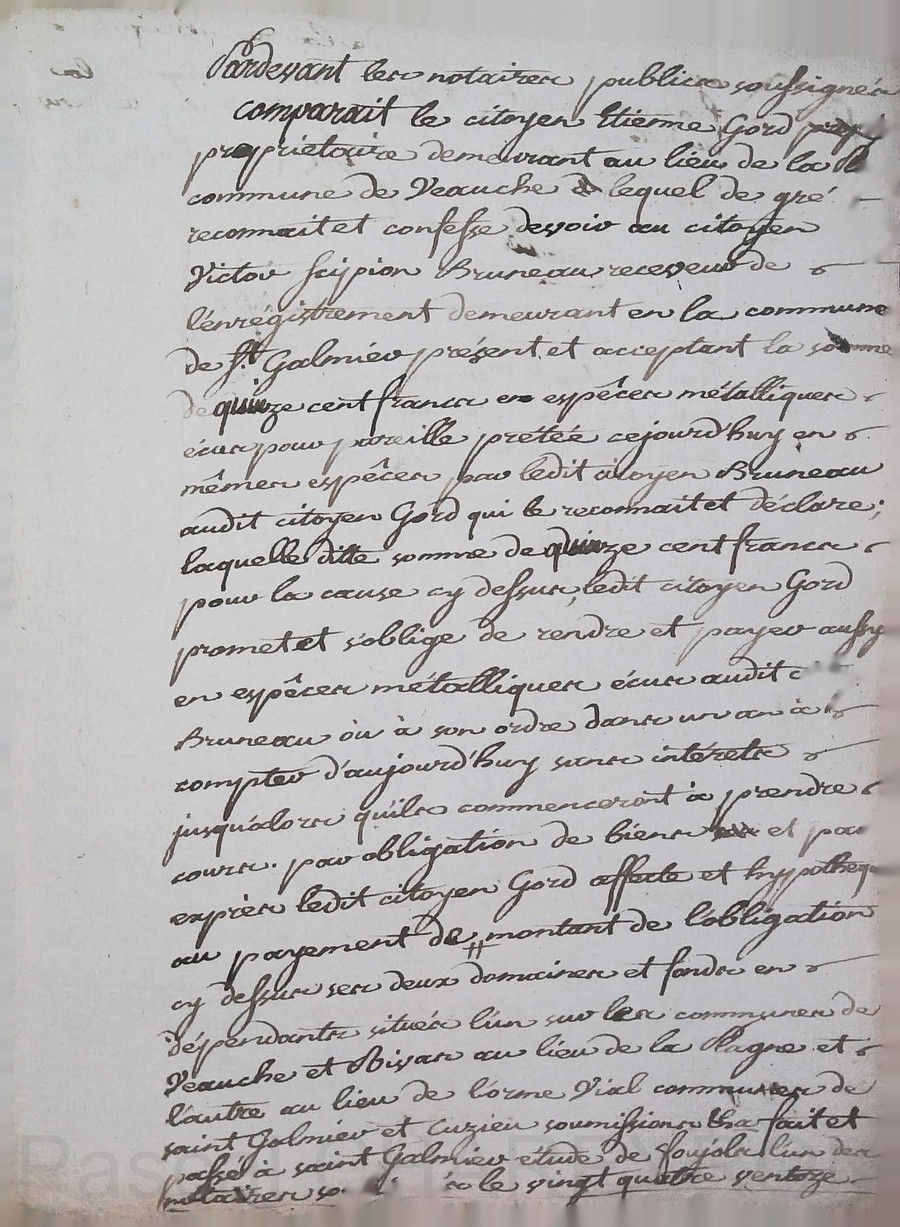 Pardevant les notaires publics soussignés
comparait le citoyen Etienne Gord
proprietaire demeurant au lieu de la
commune de Veauche lequel de gré
reconnait et confesse devoir au citoyen
Victor Scipion Bruneau receveur de
l'enrégistrement demeurant en la commune
de St. Galmier présent et acceptant la somme
de quinze cent francs en espêces métalliques
écus pour pareille prétée cejourd'huy en
mêmes espêces par ledit citoyen Bruneau
audit citoyen Gord qui le reconnait et déclare;
laquelle ditte somme de quinze cent francs
pour la cause cy dessus, ledit citoyen Gord
promet et s'oblige de rendre et payer aussy
en espêces métalliques écus audit
Bruneau où à son ordre dans un an à
compter d'aujourd'huy sans intérets
jusqu'alors qu'ils commenceront à prendre
cours. par obligation de biens et par
exprès ledit citoyen Gord affecte et hypotheque
au payement de montant de l'obligation
cy dessus ses deux domaines et fonds en
dépendants situés l'un sur les communes de
Veauche et Rivas au lieu de la Plagne et
l'autre au lieu de l'orme Vial communes de
saint Galmier et Cuzieu soumissions &ha fait et
passé à saint Galmier étude de foujols l'un des
notaires le vingt quatre ventoze